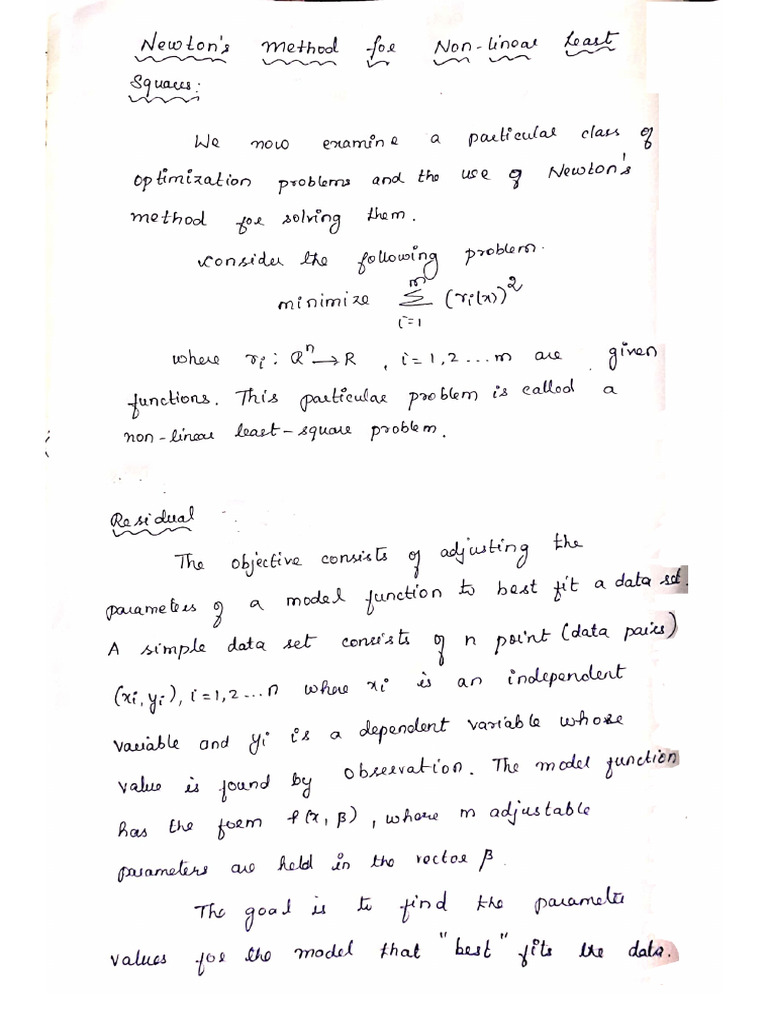 Newton's Method for Non-linear Least
Squares:
We now examine a particular class of
optimization problems and the use of Newton's
method for solving them.
Consider the following problem.
minimize \sum_{i=1}^{m} (r_i(x))^2
where r_i : R^n → R, i = 1,2 ... m are given
functions. This particular problem is called a
non-linear least-square problem.
Residual
The objective consists of adjusting the
parameters of a model function to best fit a data set.
A simple data set consists of n point (data pairs)
(x_i, y_i), i = 1,2 ... n where x_i is an independent
variable and y_i is a dependent variable whose
value is found by observation. The model function
has the form f(x, β), where m adjustable
parameters are held in the vector β.
The goal is to find the parameter
values for the model that "best" fits the data.